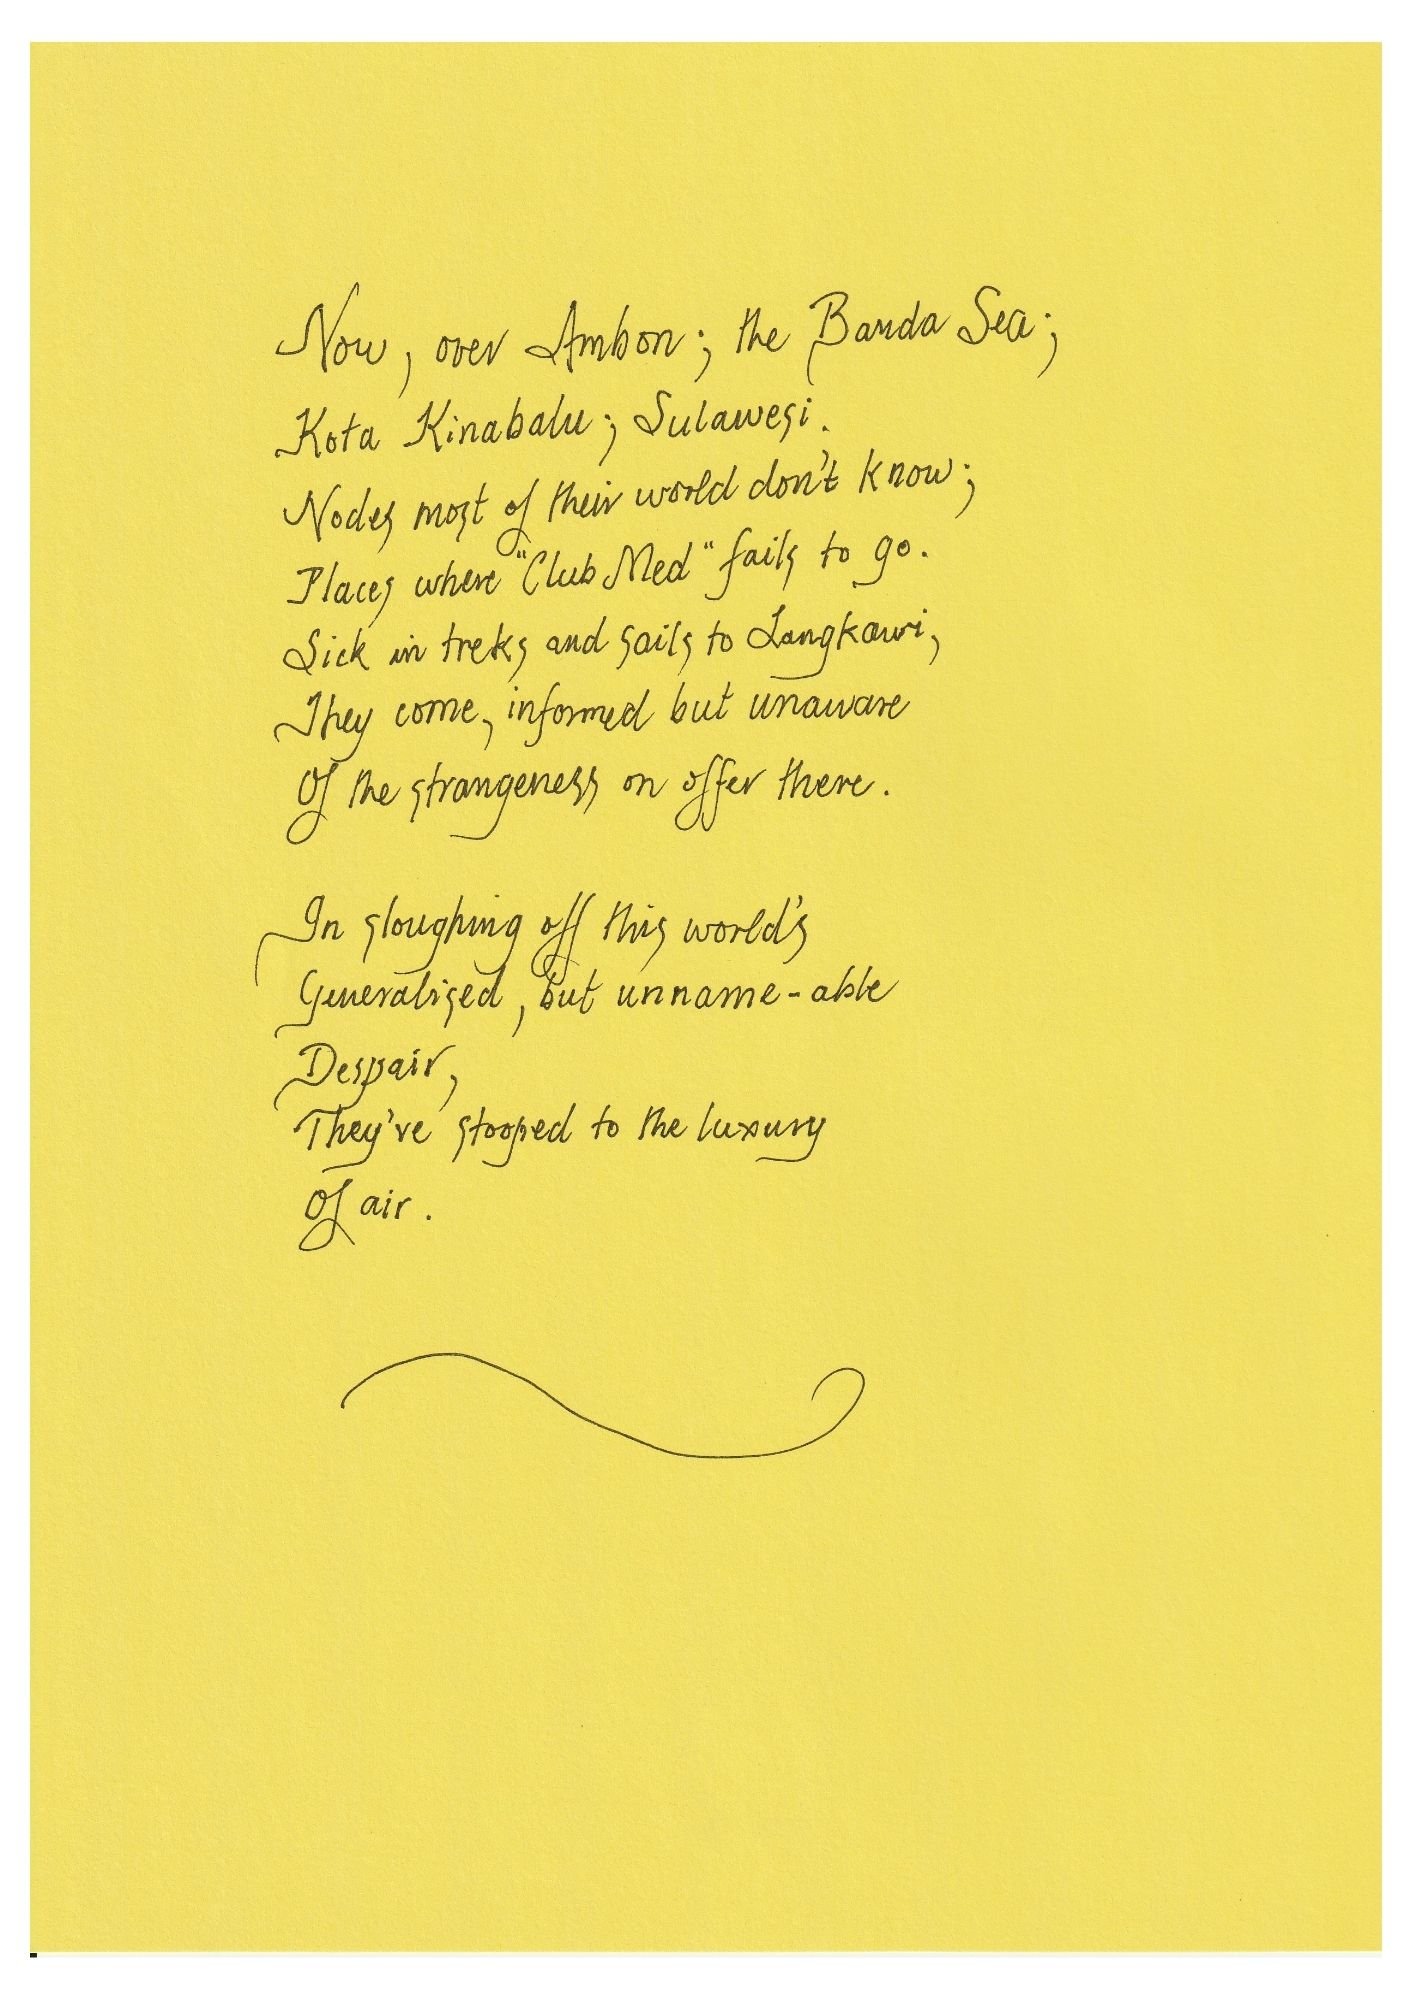 Now, over Ambon; the Banda Sea;
Kota Kinabalu; Sulawesi.
Nodes most of their world don't know;
Places where "Club Med" fails to go.
Sick in treks and sails to Langkawi,
They come, informed but unaware
Of the strangeness on offer there.
In sloughing off this world's
Generalised, but unname-able
Despair,
They've stooped to the luxury
Of air.